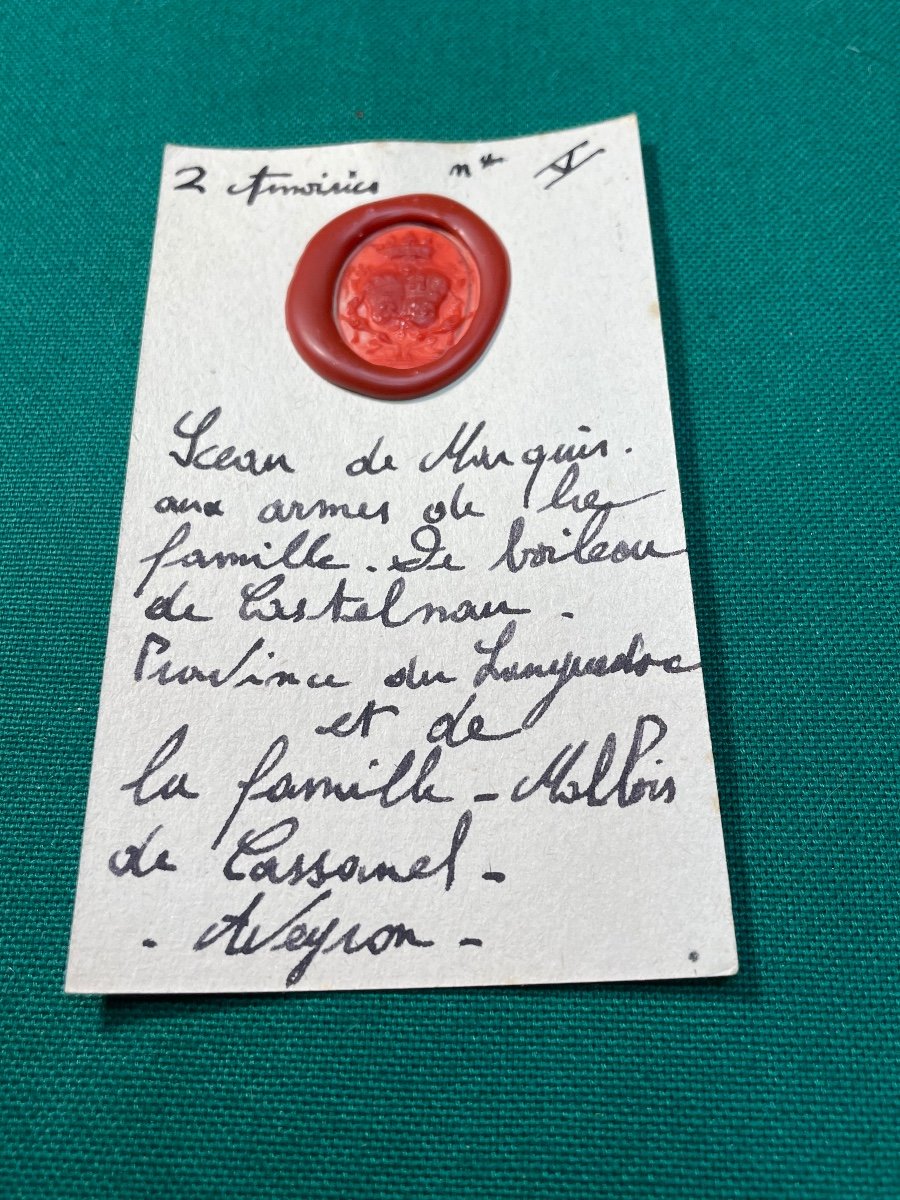 2 Armoiries n° V
Sceau de Marquis.
aux armes de la
famille. De boileau
de Castelnau -
Province du Languedoc
et de
la famille - Malbois
de Cassanel -
- Aveyron -